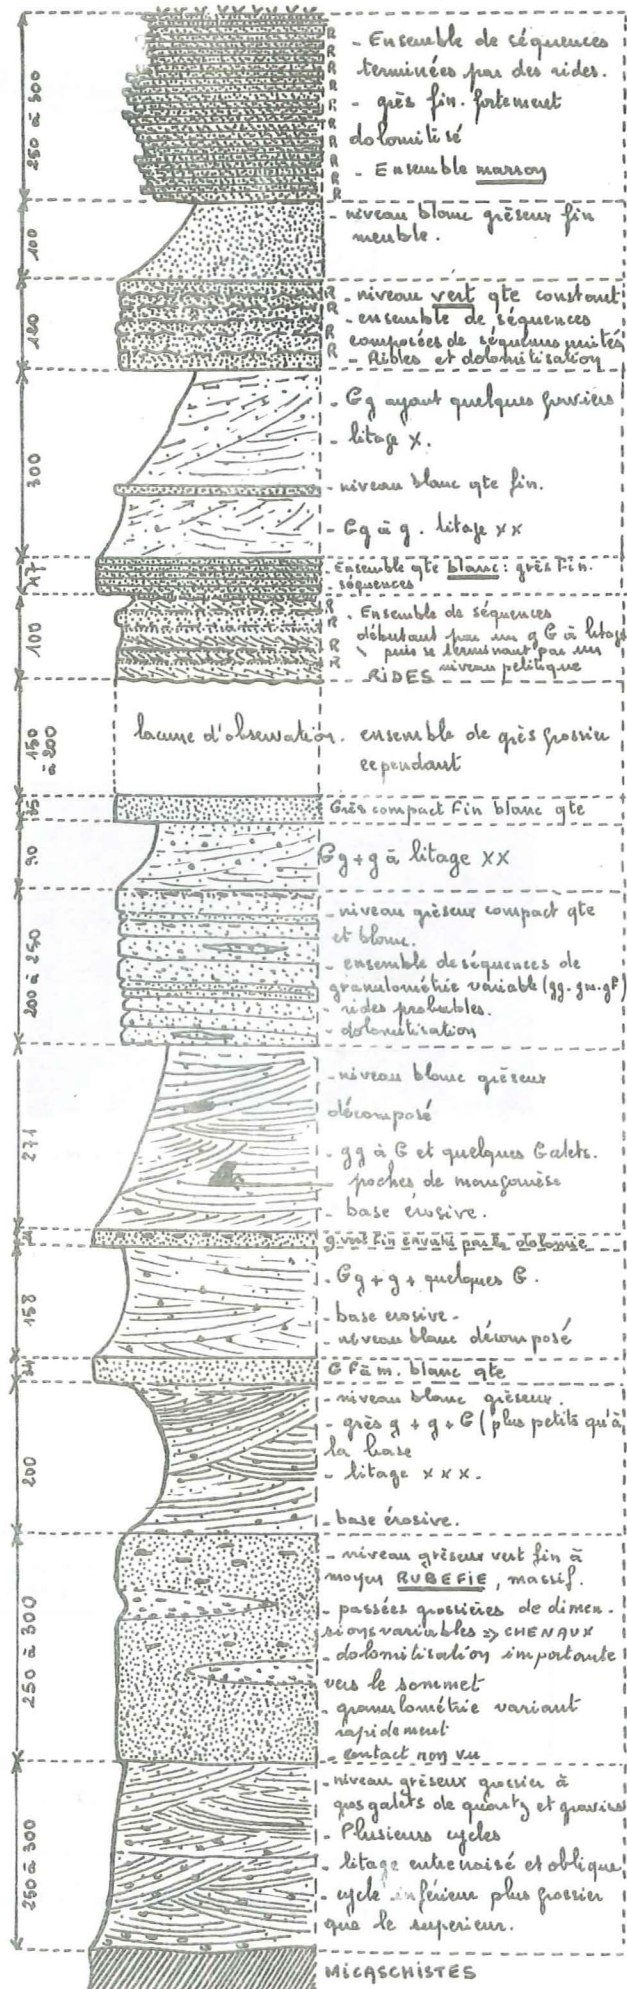 250 à 300
R R R R R R R R R R
- Ensemble de séquences
terminées par des rides.
- grès fin fortement
dolomitisé
- Ensemble marron
100
- niveau blanc gréseux fin
meuble.
R R R R R R
- niveau vert qte constant
- ensemble de séquences
composées de séquences unités
- Ribles et dolomitisation
300
- Gg ayant quelques graviers
- litage X.
- niveau blanc qte fin.
- Gg à g. litage XX
47
- Ensemble qte blanc : grès Fin.
séquences
100
R R R R
- Ensemble de séquences
débutant par un gG à litage
puis se terminant par un
niveau pélitique
RIDES
150
à 200
lacune d'observation. ensemble de grès grossier
cependant
35
Grès compact Fin blanc qte
90
Gg + g à litage XX
200 à 250
- niveau gréseux compact qte
et blanc.
- ensemble de séquences de
granulométrie variable (gg. gm. gF)
- rides probables.
- dolomitisation
271
- niveau blanc gréseux
décomposé
- gg à G et quelques Galets.
poches de manganèse
- base érosive.
g vert fin envahi par la dolomie
158
- Gg + g + quelques G.
- base érosive.
- niveau blanc décomposé
34
G F à m. blanc qte
200
- niveau blanc gréseux.
- grès g + g + G (plus petits qu'à
la base
- litage XXX.
- base érosive.
250 à 300
- niveau gréseux vert fin à
moyen RUBEFIE, massif.
- passées grossières de dimen-
sions variables => CHENAUX
- dolomitisation importante
vers le sommet
- granulométrie variant
rapidement
- contact non vu
250 à 300
- niveau gréseux grossier à
gros galets de quartz et graviers
- Plusieurs cycles
- litage entrecroisé et oblique
- cycle inférieur plus grossier
que le supérieur.
MICASCHISTES